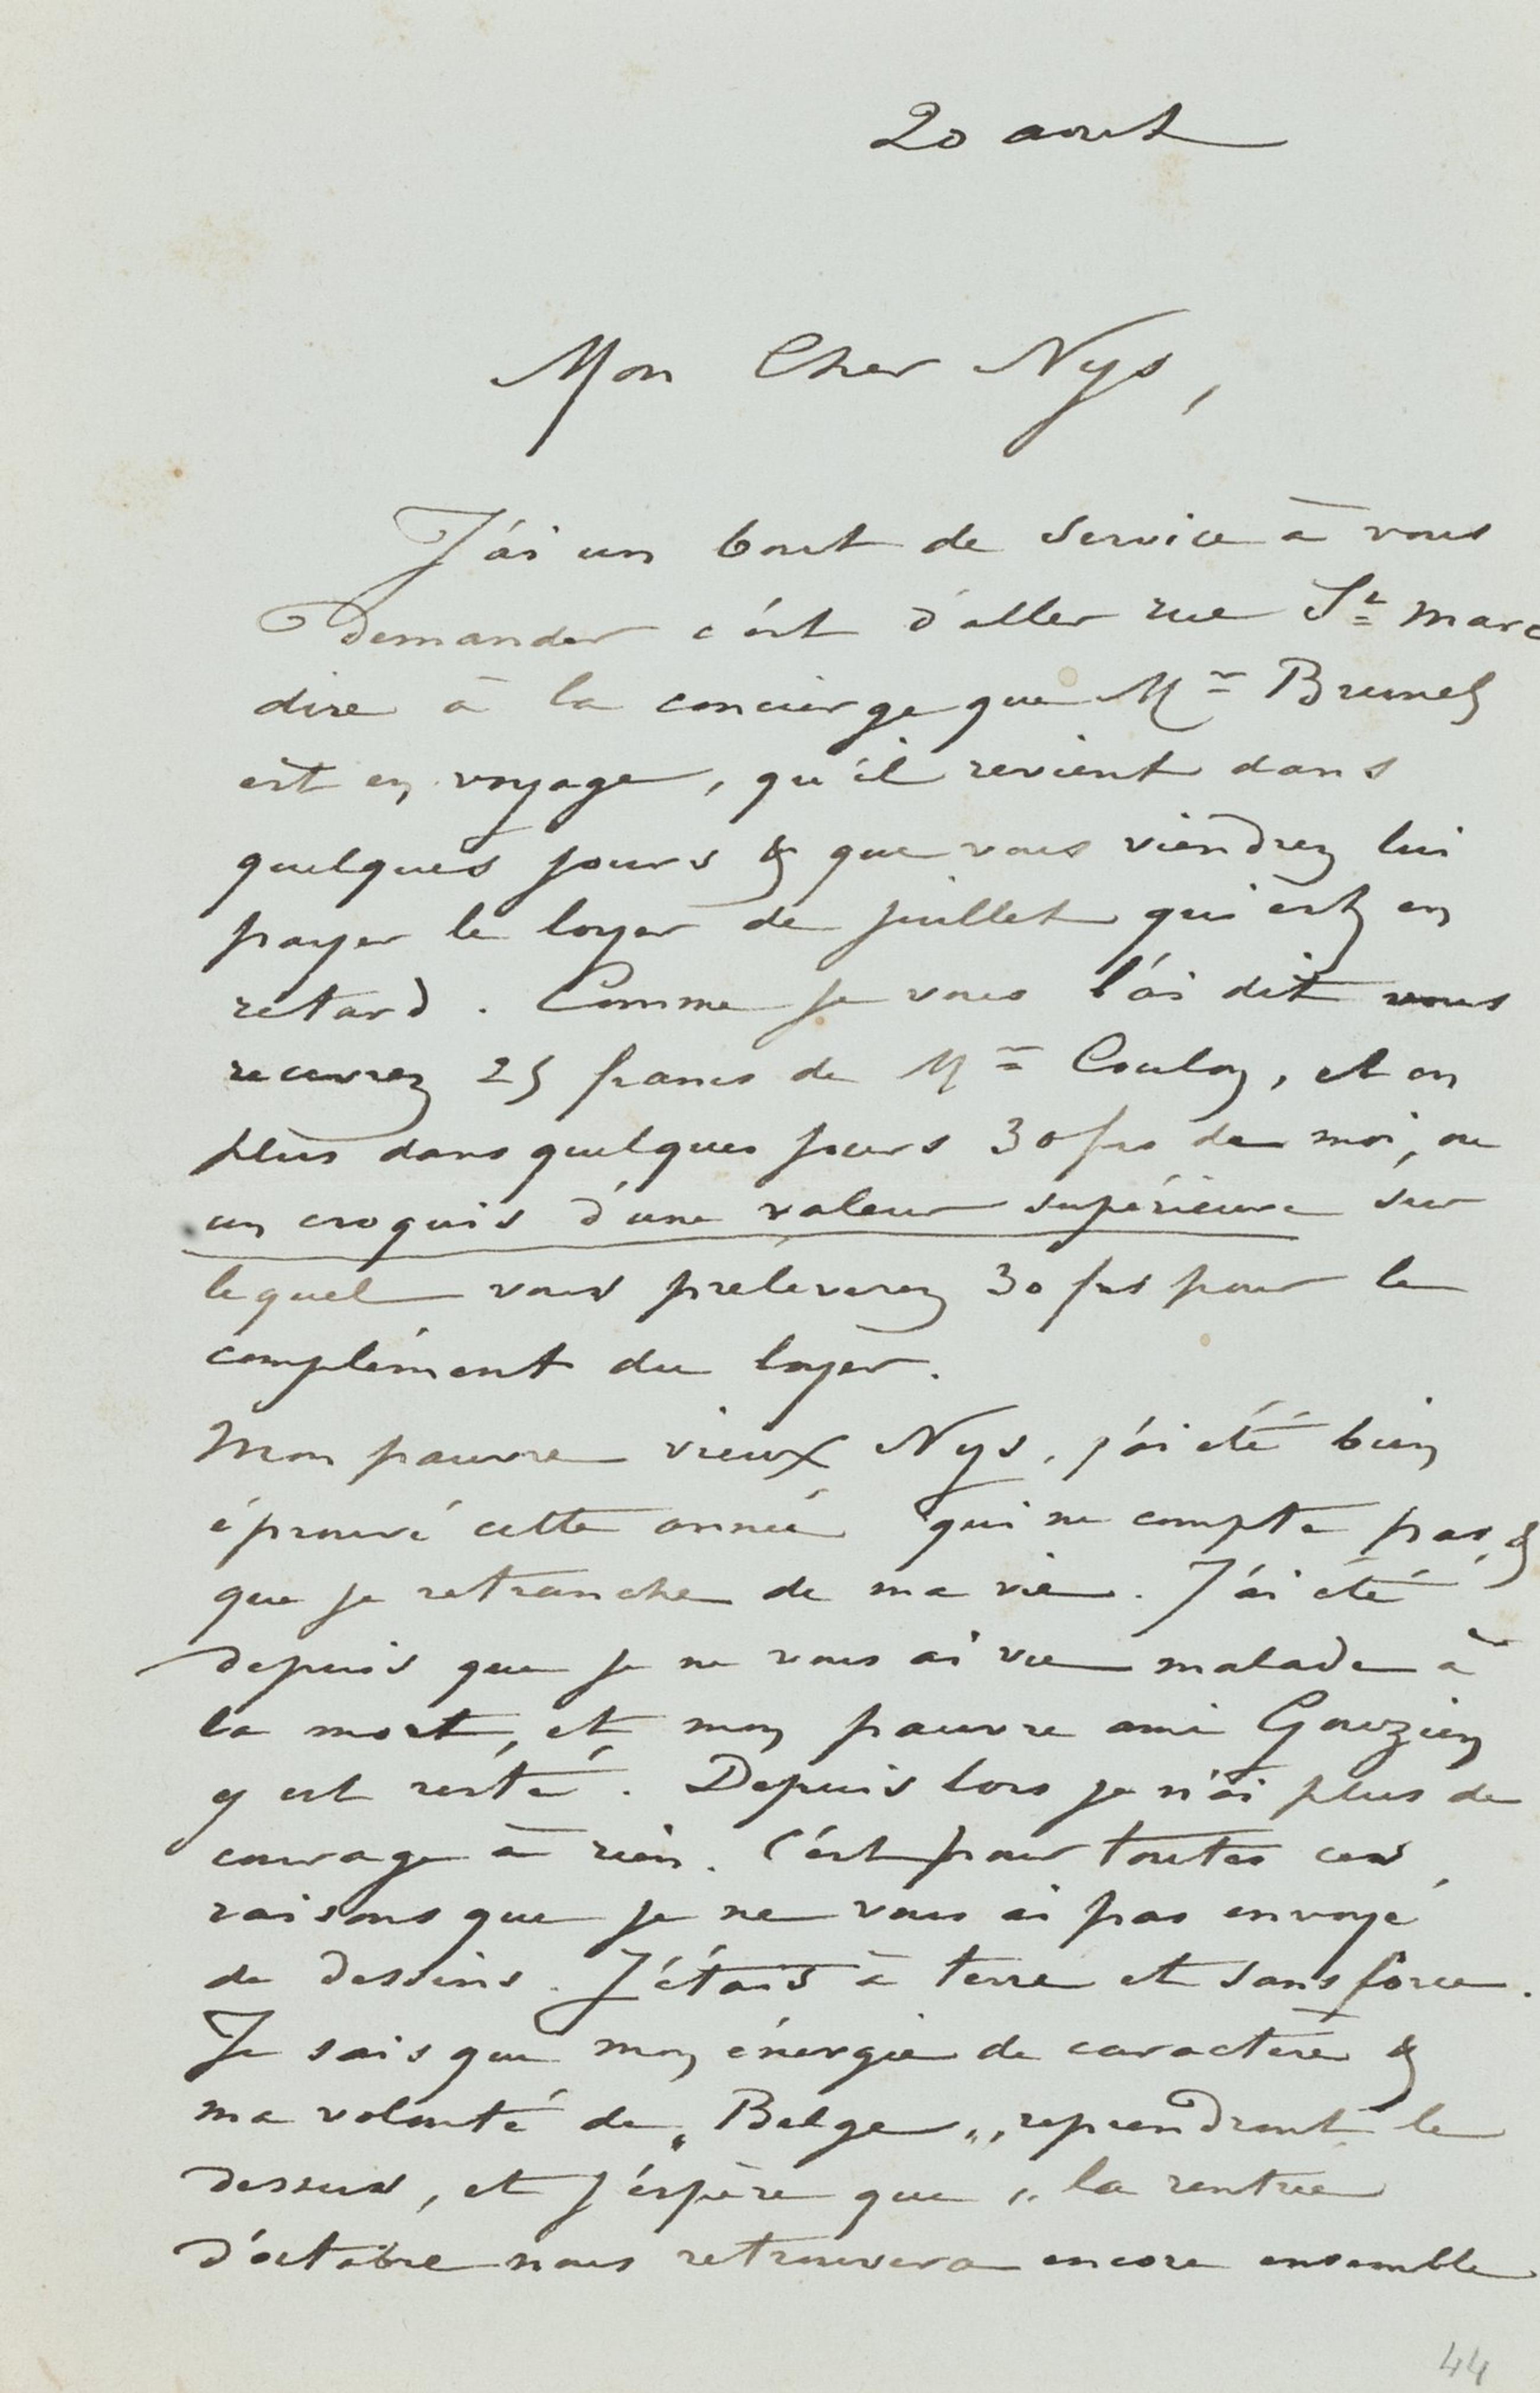 20 aout
Mon Cher Nys,
J'ai un bout de service à vous
Demander c'est d'aller rue St Marc
dire à la concierge que Mr Brunel
est en voyage, qu'il revient dans
quelques jours & que vous viendrez lui
payer le loyer de juillet qui est en
retard. Comme je vous l'ai dit vous
recevrez 25 francs de Mr Coulon, et en
plus dans quelques jours 30 frs de moi, ou
un croquis d'une valeur supérieure sur
lequel vous preleverez 30 frs pour le
complément du loyer.
Mon pauvre vieux Nys, j'ai été bien
éprouvé cette année qui ne compte pas, &
que je retranche de ma vie. J'ai été
depuis que je ne vous ai vu malade à
la mort, et mon pauvre ami Gouzien
y est resté. Depuis lors je n'ai plus de
courage à rien. C'est pour toutes ces
raisons que je ne vous ai pas envoyé
de dessins. J'étais à terre et sans force.
Je sais que mon énergie de caractère &
ma volonté de „Belge„, reprendront le
dessus, et j'éspère que „la rentrée
d'octobre nous retrouvera encore ensemble
44